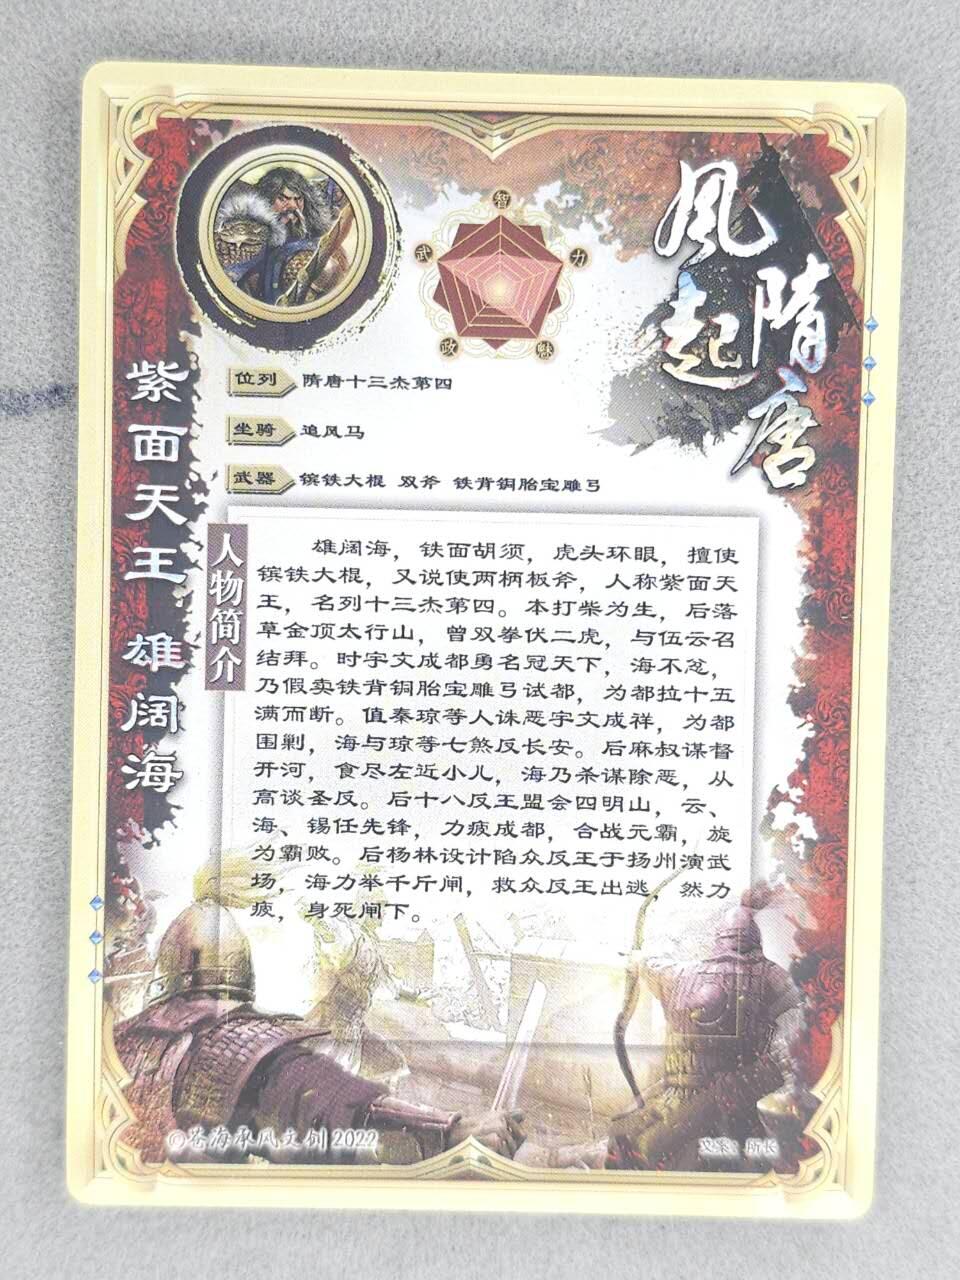 風起
隋唐
智
武
力
政
魅
位列 隋唐十三杰第四
坐骑 追风马
武器 镔铁大棍 双斧 铁背铜胎宝雕弓
紫面天王 雄阔海
人物简介
雄阔海，铁面胡须，虎头环眼，擅使
镔铁大棍，又说使两柄板斧，人称紫面天
王，名列十三杰第四。本打柴为生，后落
草金顶太行山，曾双拳伏二虎，与伍云召
结拜。时宇文成都勇名冠天下，海不忿，
乃假卖铁背铜胎宝雕弓试都，为都拉十五
满而断。值秦琼等人诛恶宇文成祥，为都
围剿，海与琼等七煞反长安。后麻叔谋督
开河，食尽左近小儿，海乃杀谋除恶，从
高谈圣反。后十八反王盟会四明山，云、
海、锡任先锋，力疲成都，合战元霸，旋
为霸败。后杨林设计陷众反王于扬州演武
场，海力举千斤闸，救众反王出逃，然力
疲，身死闸下。
©苍海承风文创 2022
文案：所长